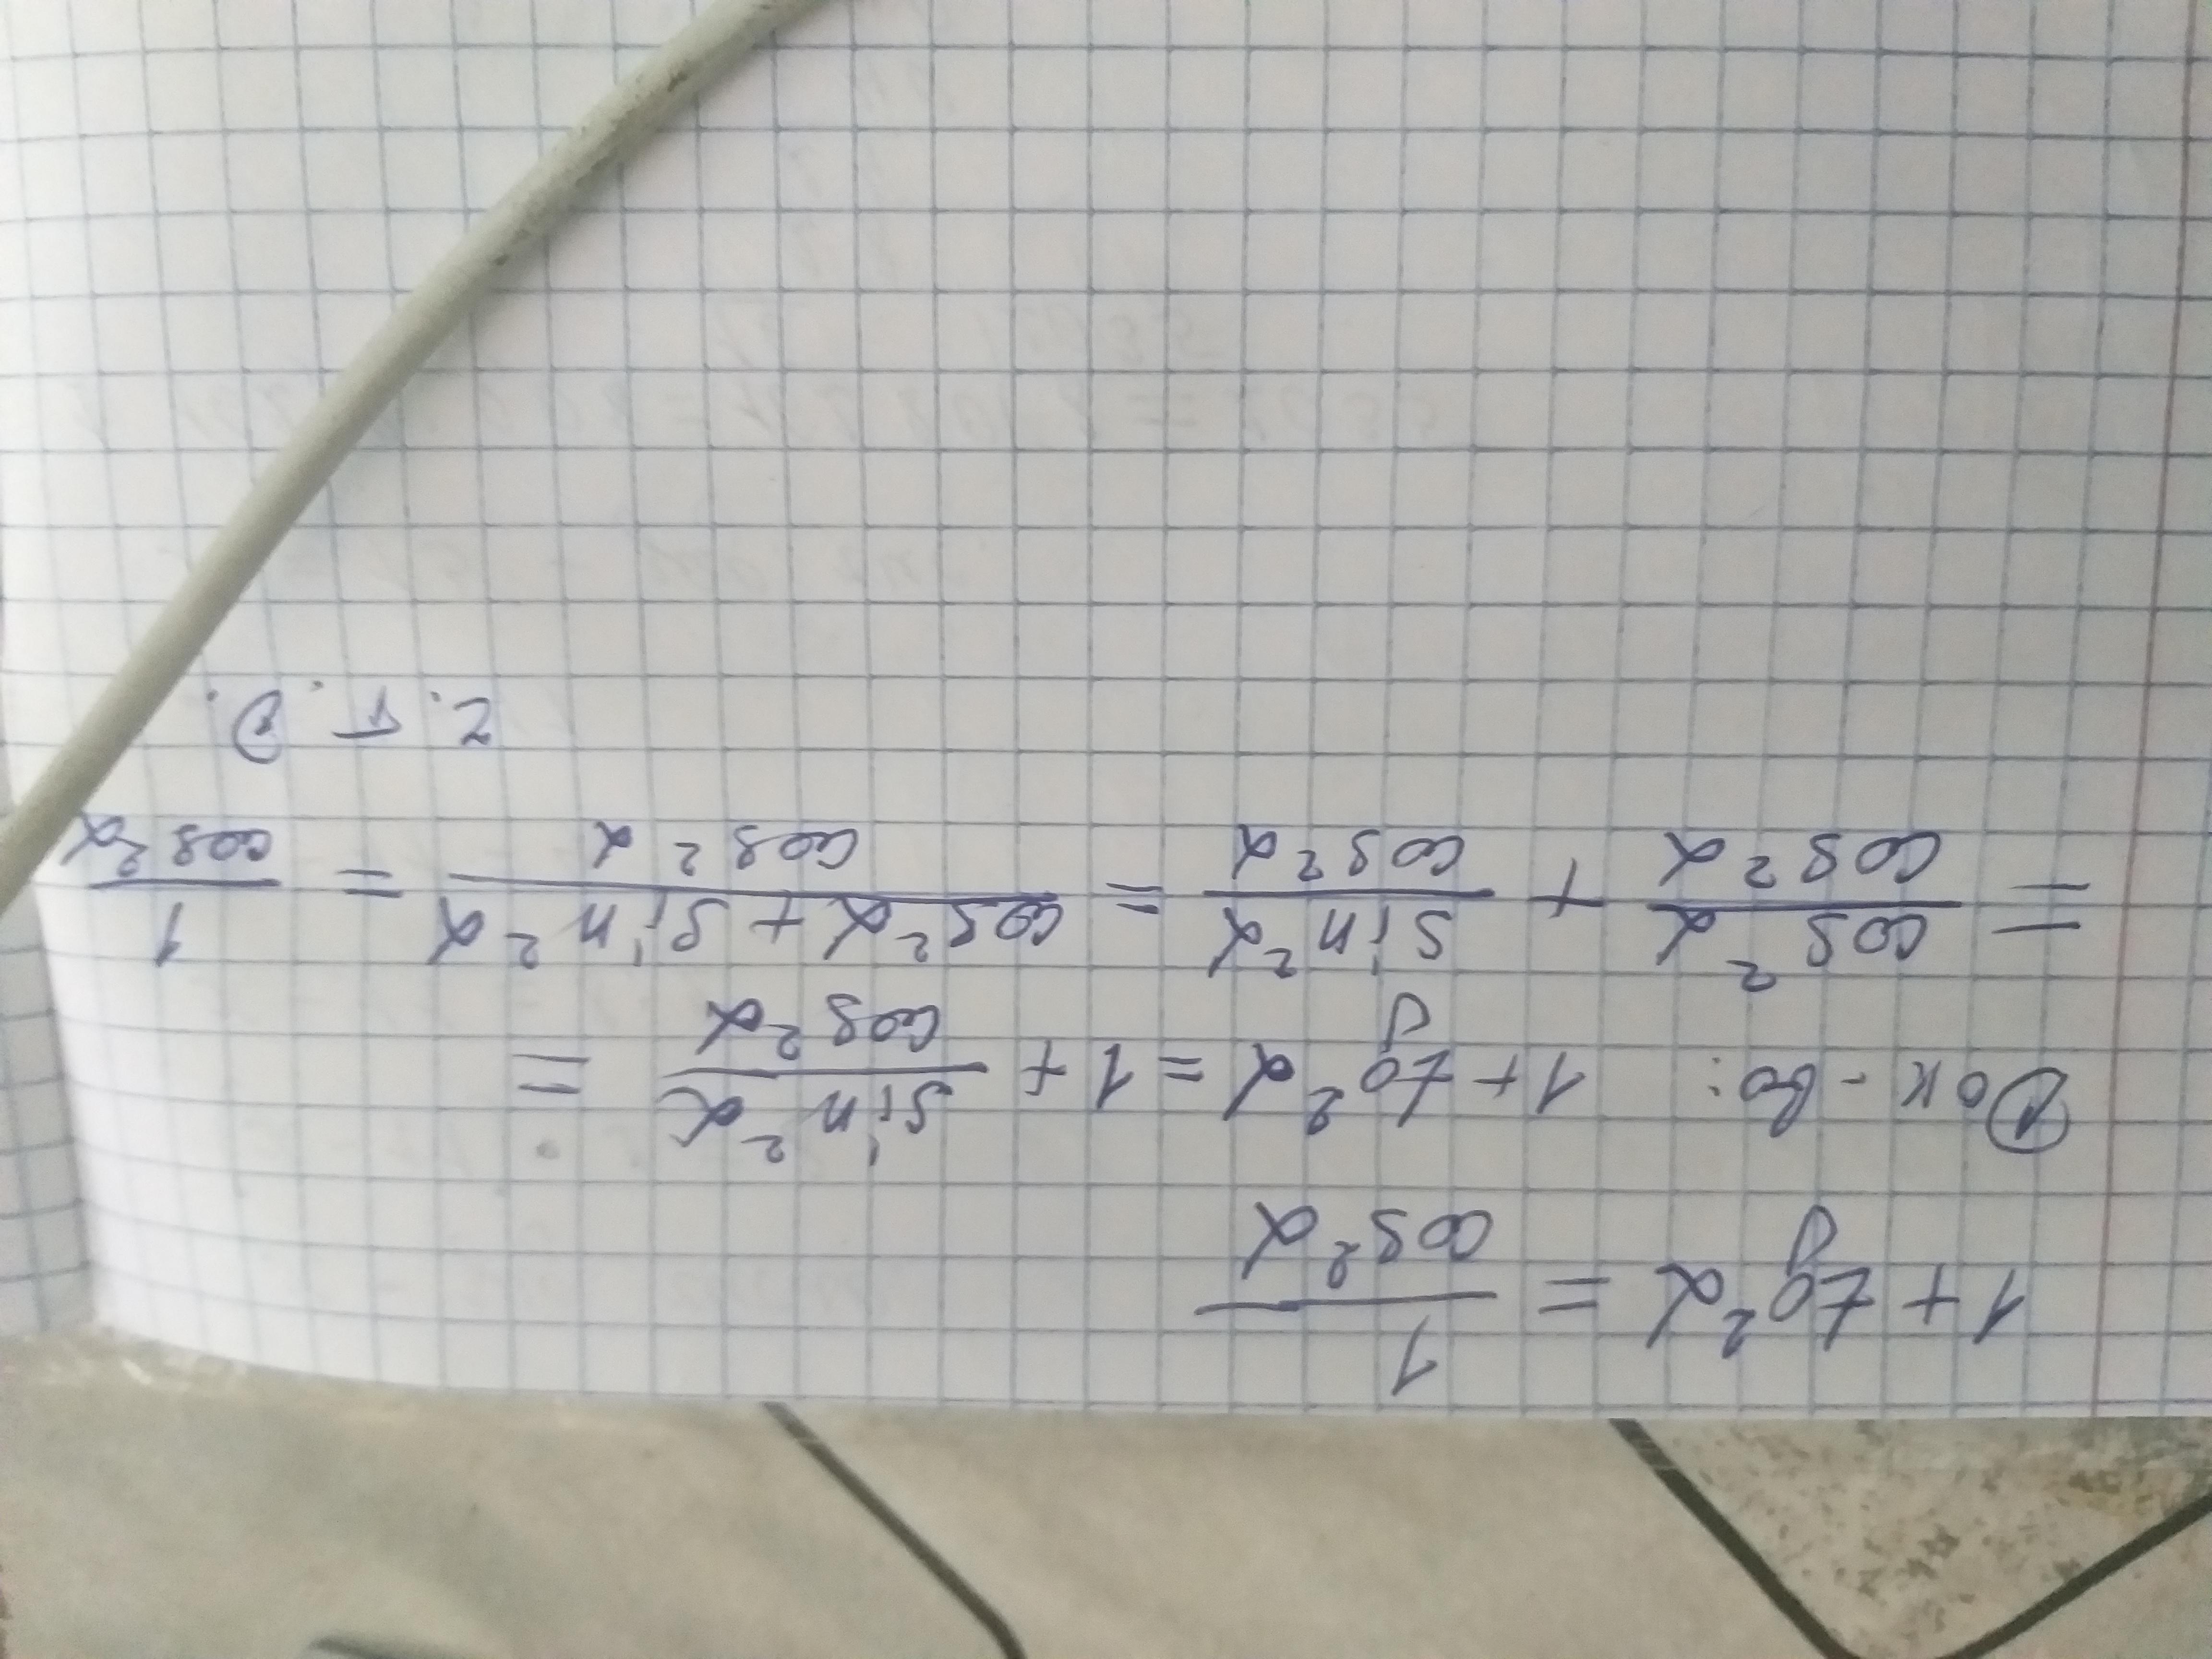 1 + tg²α = 1/cos²α
Док-во: 1 + tg²α = 1 + sin²α/cos²α =
= cos²α/cos²α + sin²α/cos²α = cos²α + sin²α/cos²α = 1/cos²α
ч. т. д.